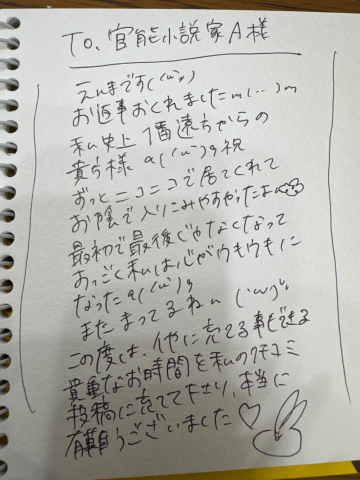 To. 官能小説家A様
えまです(
お返事おくれましたm(..)m
私史上 1番遠ちからの
貴方様 祝
ずっとニコニコで居てくれて
お陰で入りこみやすかったよ
最初で最後じゃなくなって
おっごく私はじがウキウキに
なった
またまってるねん
この度は、他に充てる事もできる
貴重なお時間を私のクチコミ
投稿に充てて下さり、本当に
有難うございました♡